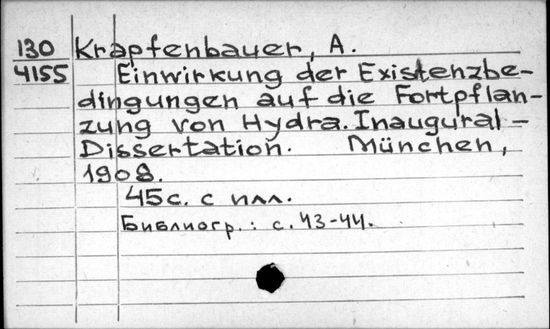 130 Krapfenbauer, A.
4155 Einwirkung der Existenzbe-
dingungen auf die Fortpflan-
zung von Hydra. Inaugural-
Dissertation. München,
1908.
45с. с илл.
Библиогр.: с. 43-44.